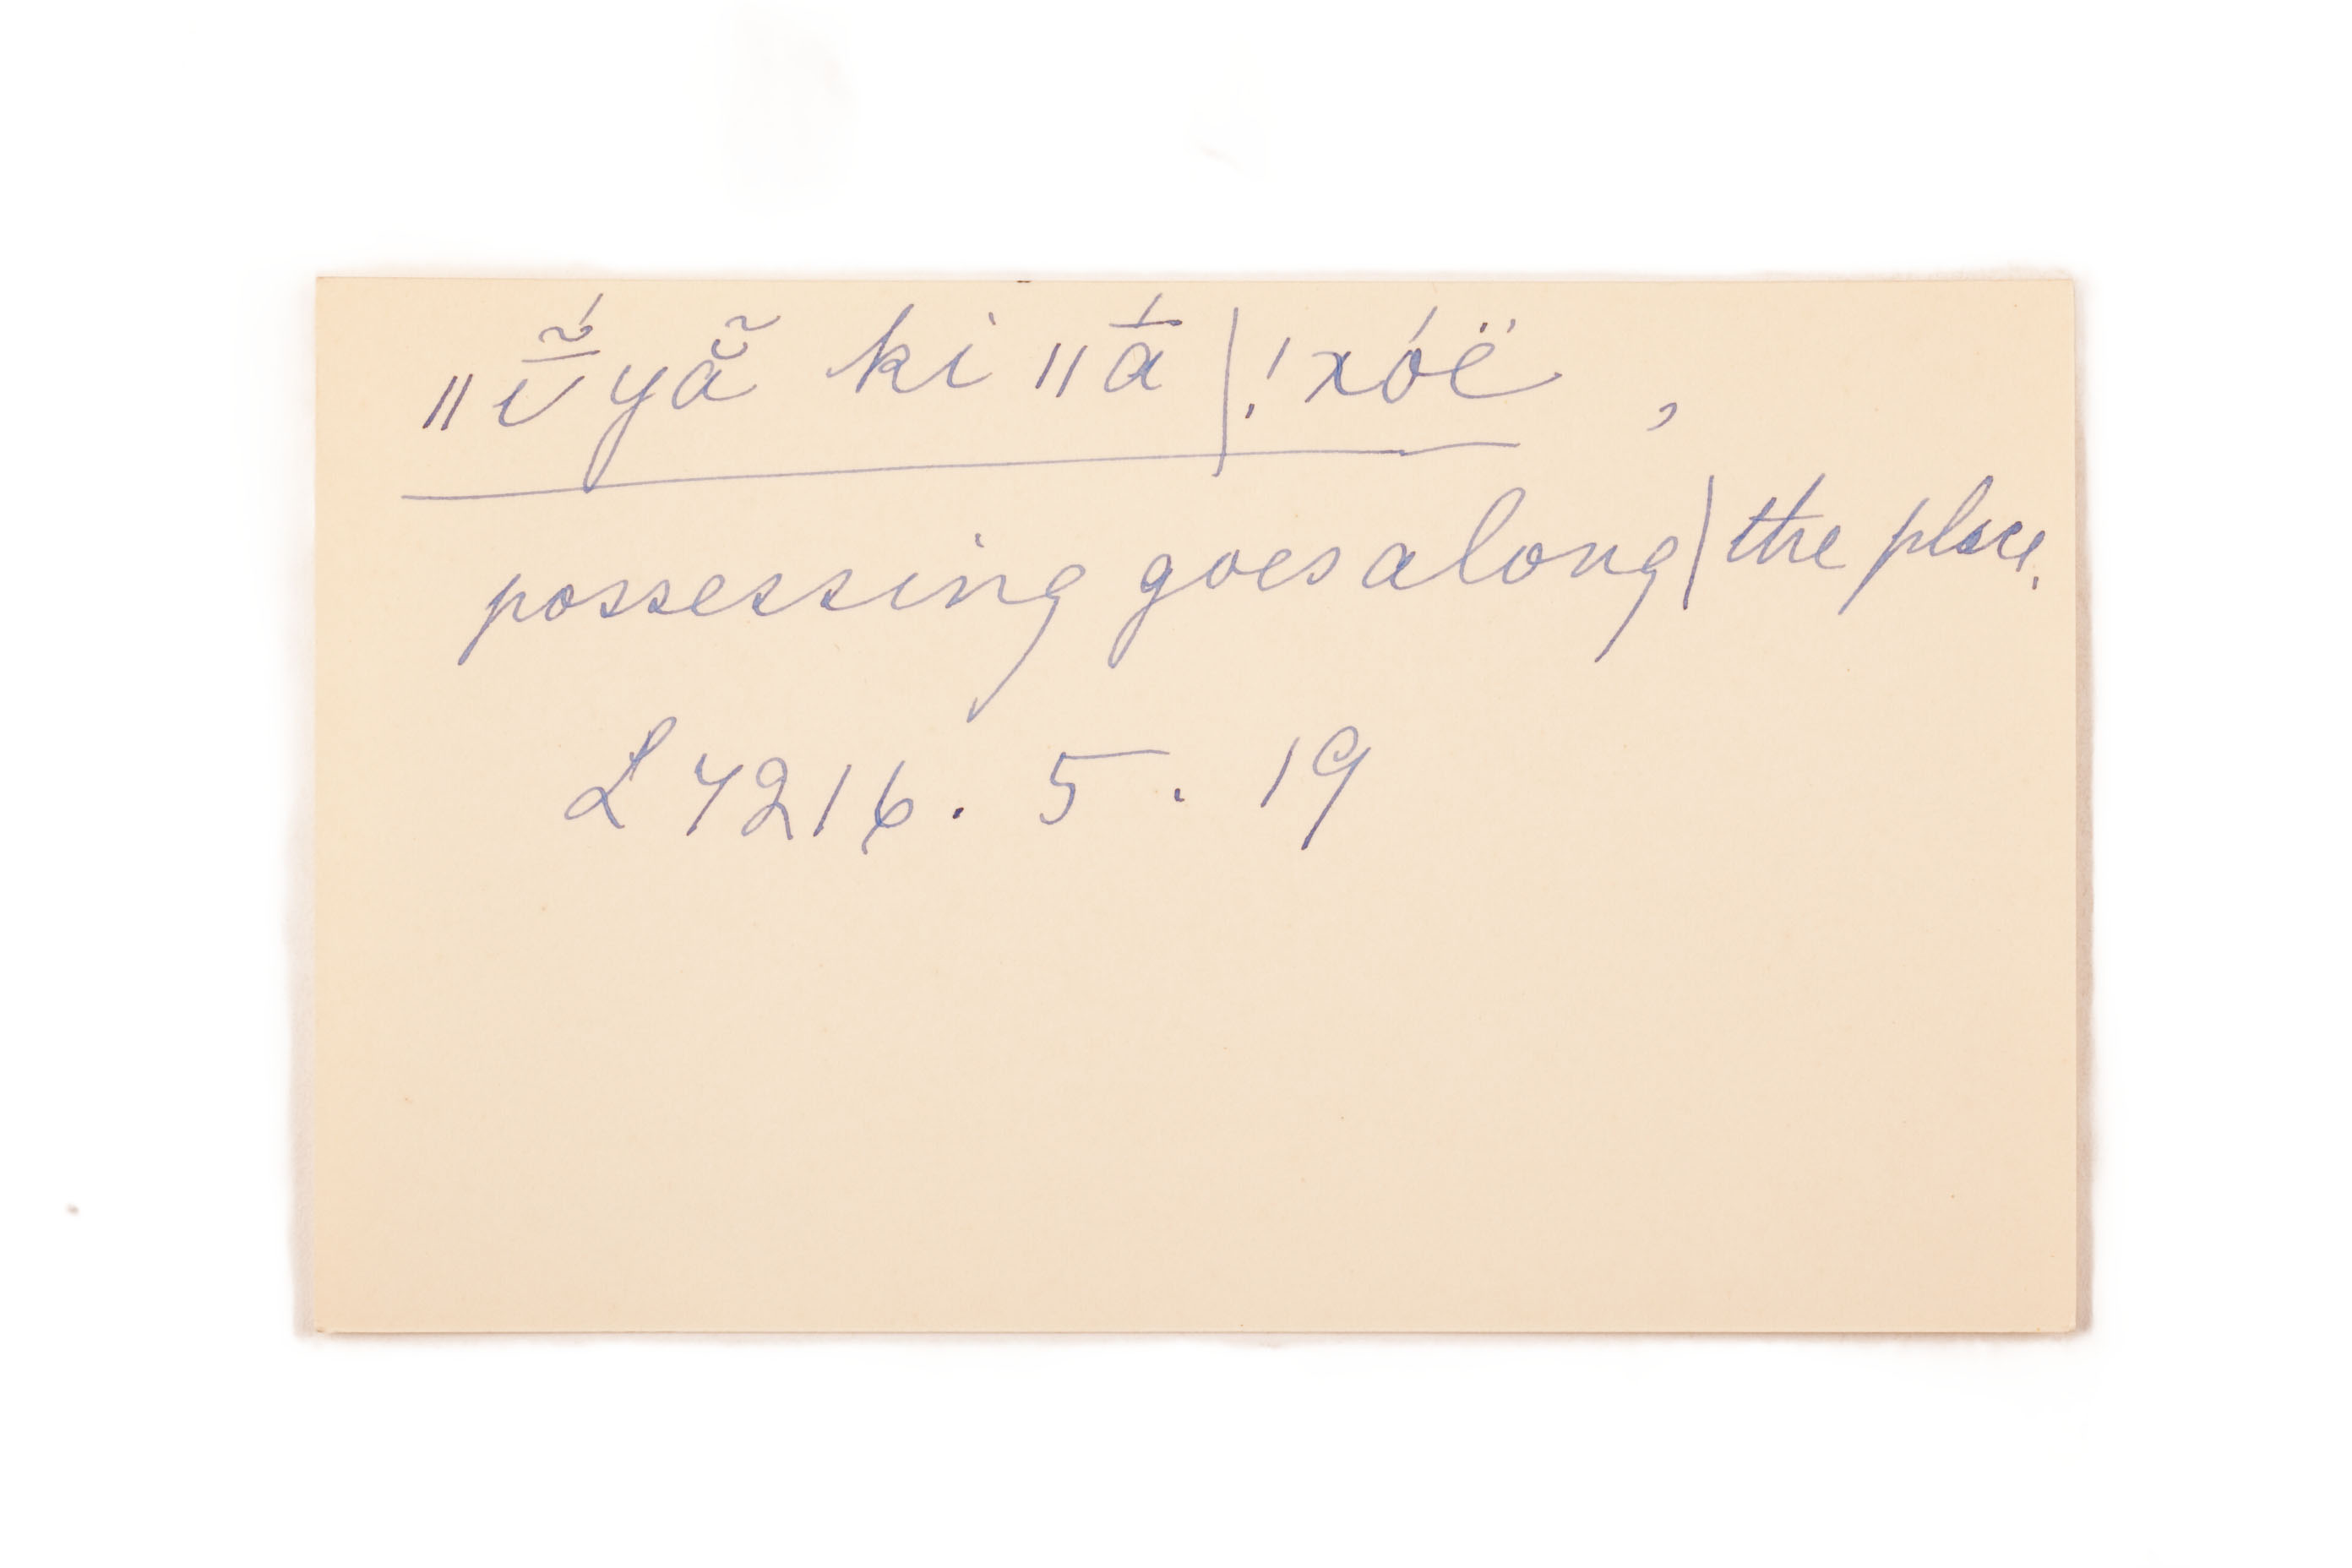 ǁī̃́yã̆ ki ǁā́ | !xóë ,
possessing goes along | the place.
L 7216. 5. 19